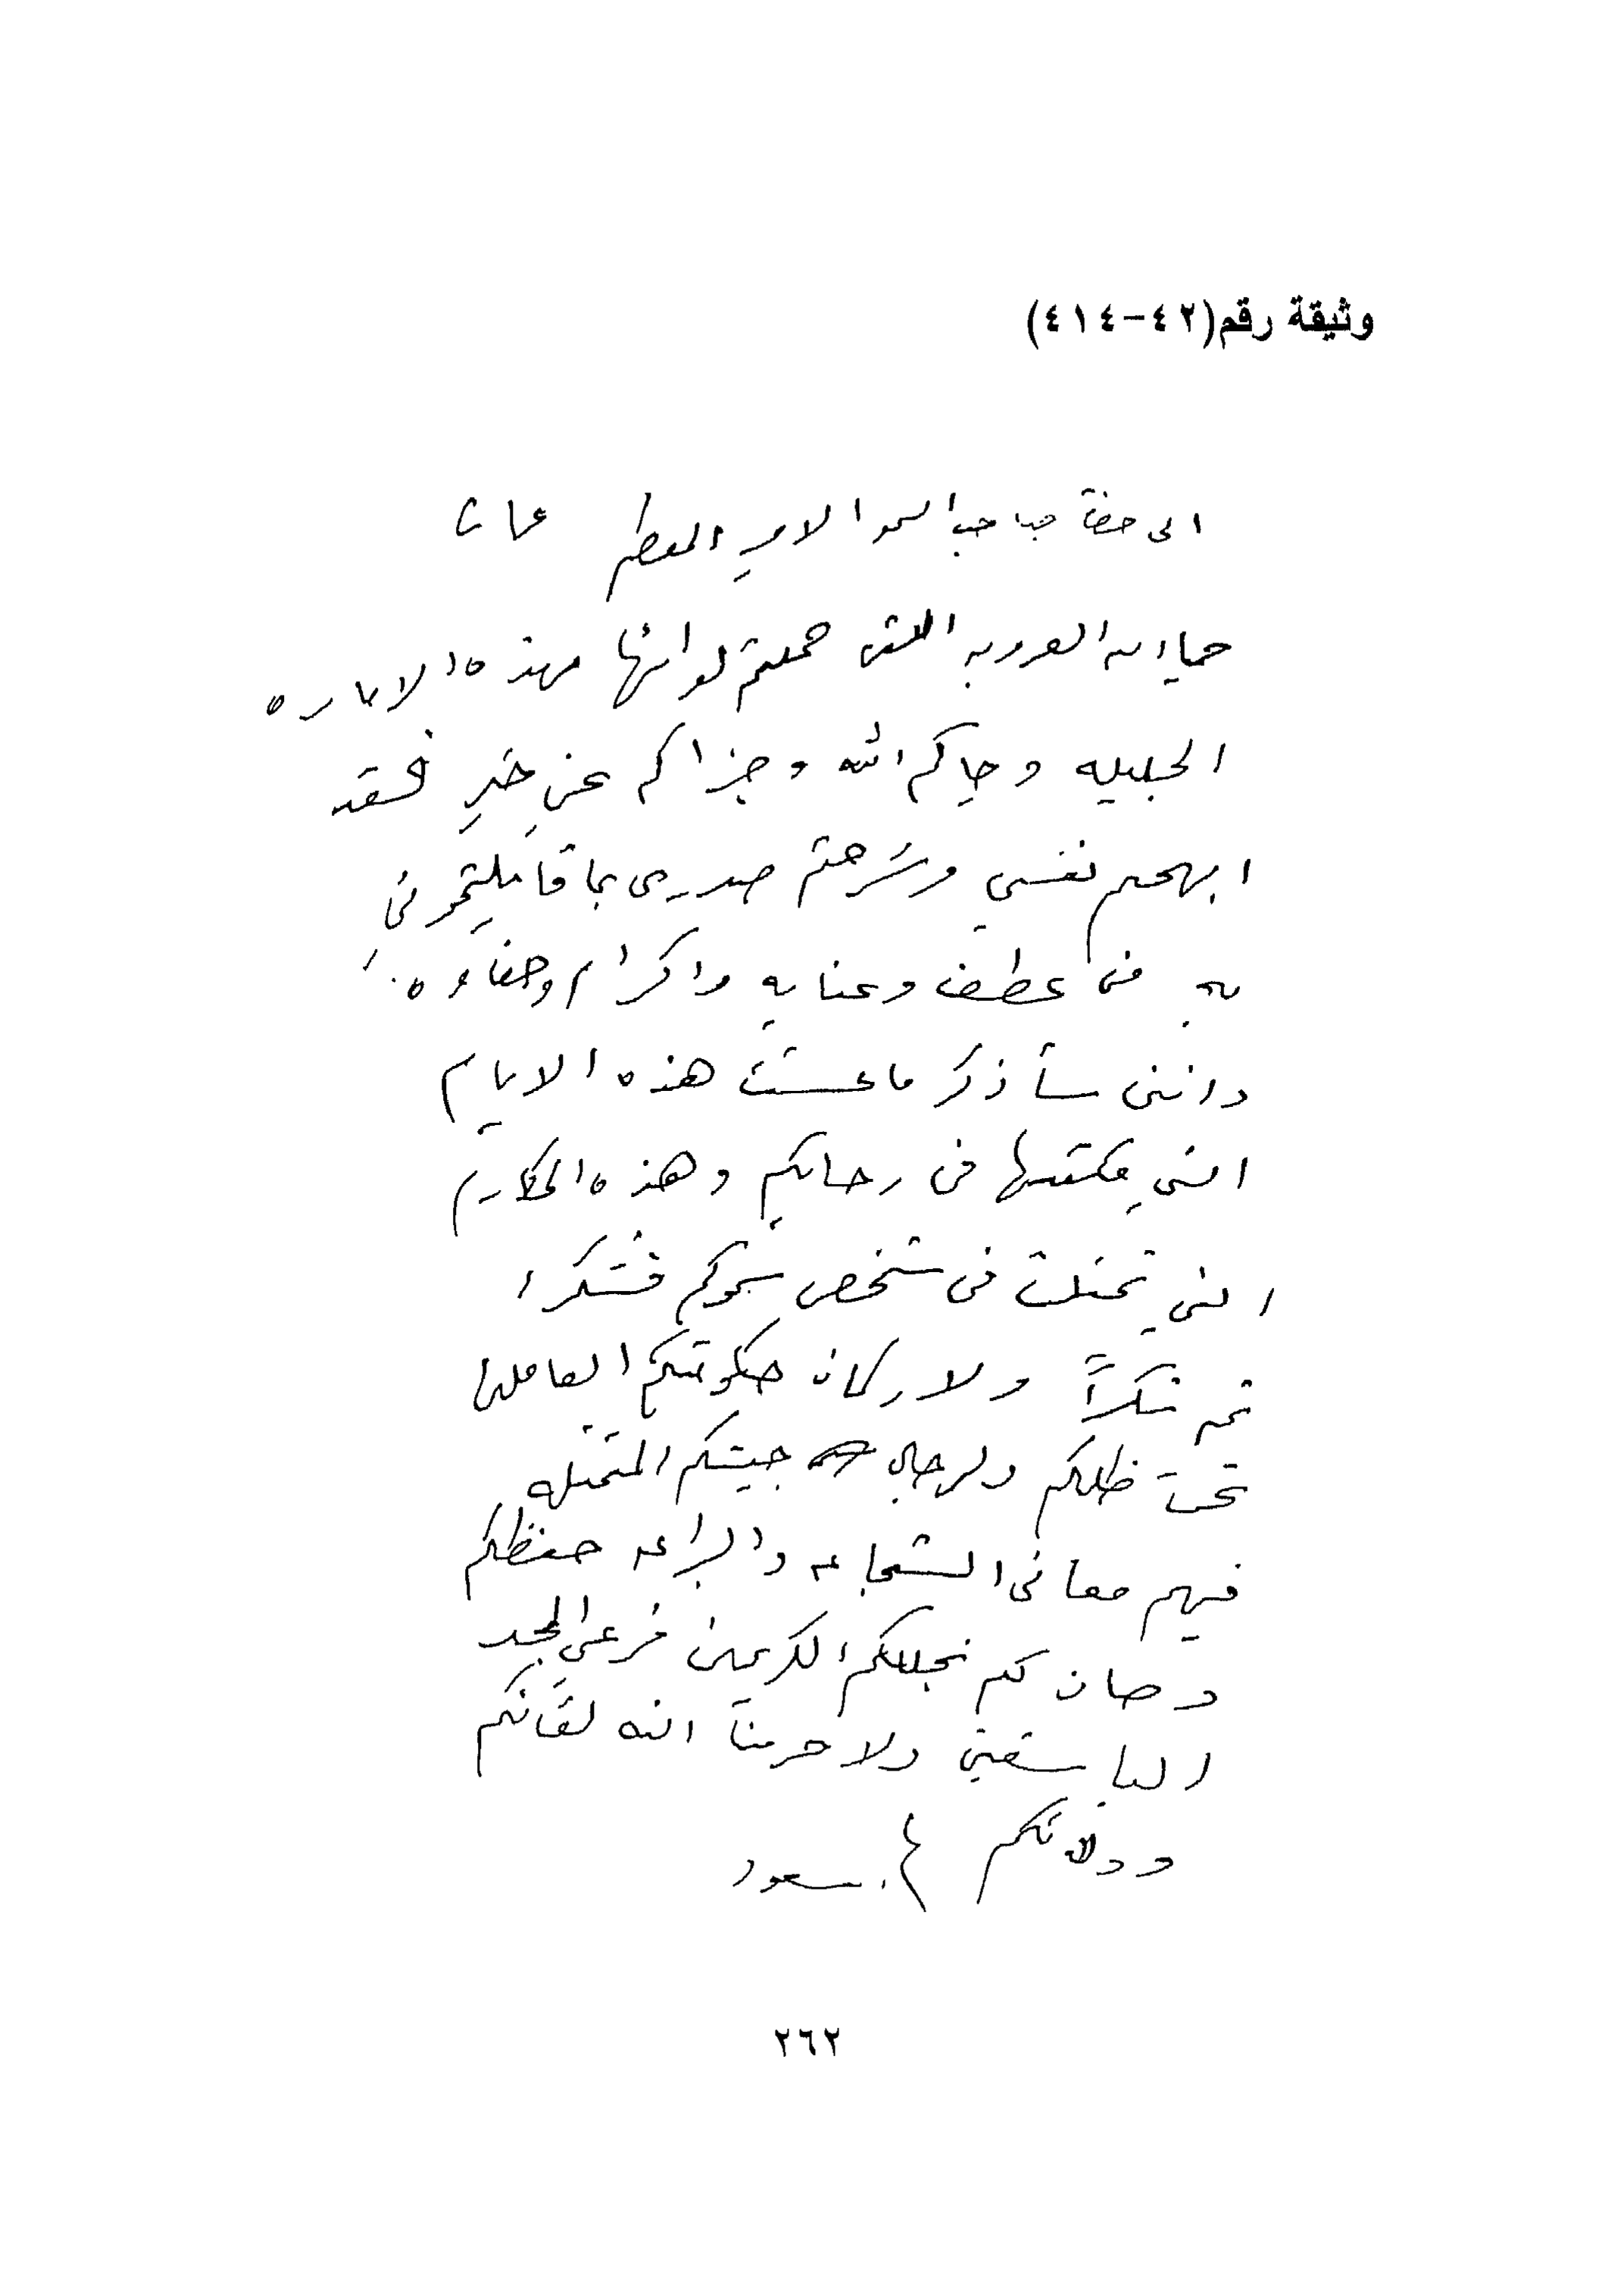 وثيقة رقم(٤٢-٤١٤)
الى حضرة صاحب السمو الامير المعظم عمان
العروبه التى حملتم لوائها بهذه الاماره
الجليله وحياكم الله وجزاكم عني خير فلقد
ابهجتم نفسي وشرحتم صدرى بما قابلتمونى
به من عطف وعنايه واكرام وحفاوه
واننى سأذكر ما عشت هذه الايام
التي مكثتها فى رحابكم وهذه المكارم
التي تمثلت فى شخص سموكم فشكرا
ثم شكراً ولاركان حكومتكم العاملين
تحت ظلكم ولرجال جيشكم المتمثله
فيهم معانى الشجاعه والبراعه حفظكم
وصان لكم نجليكم الكريمين فرعي المجد
الباسقين ولا حرمنا الله لقائكم
وولائكم سعود
٢٦٢